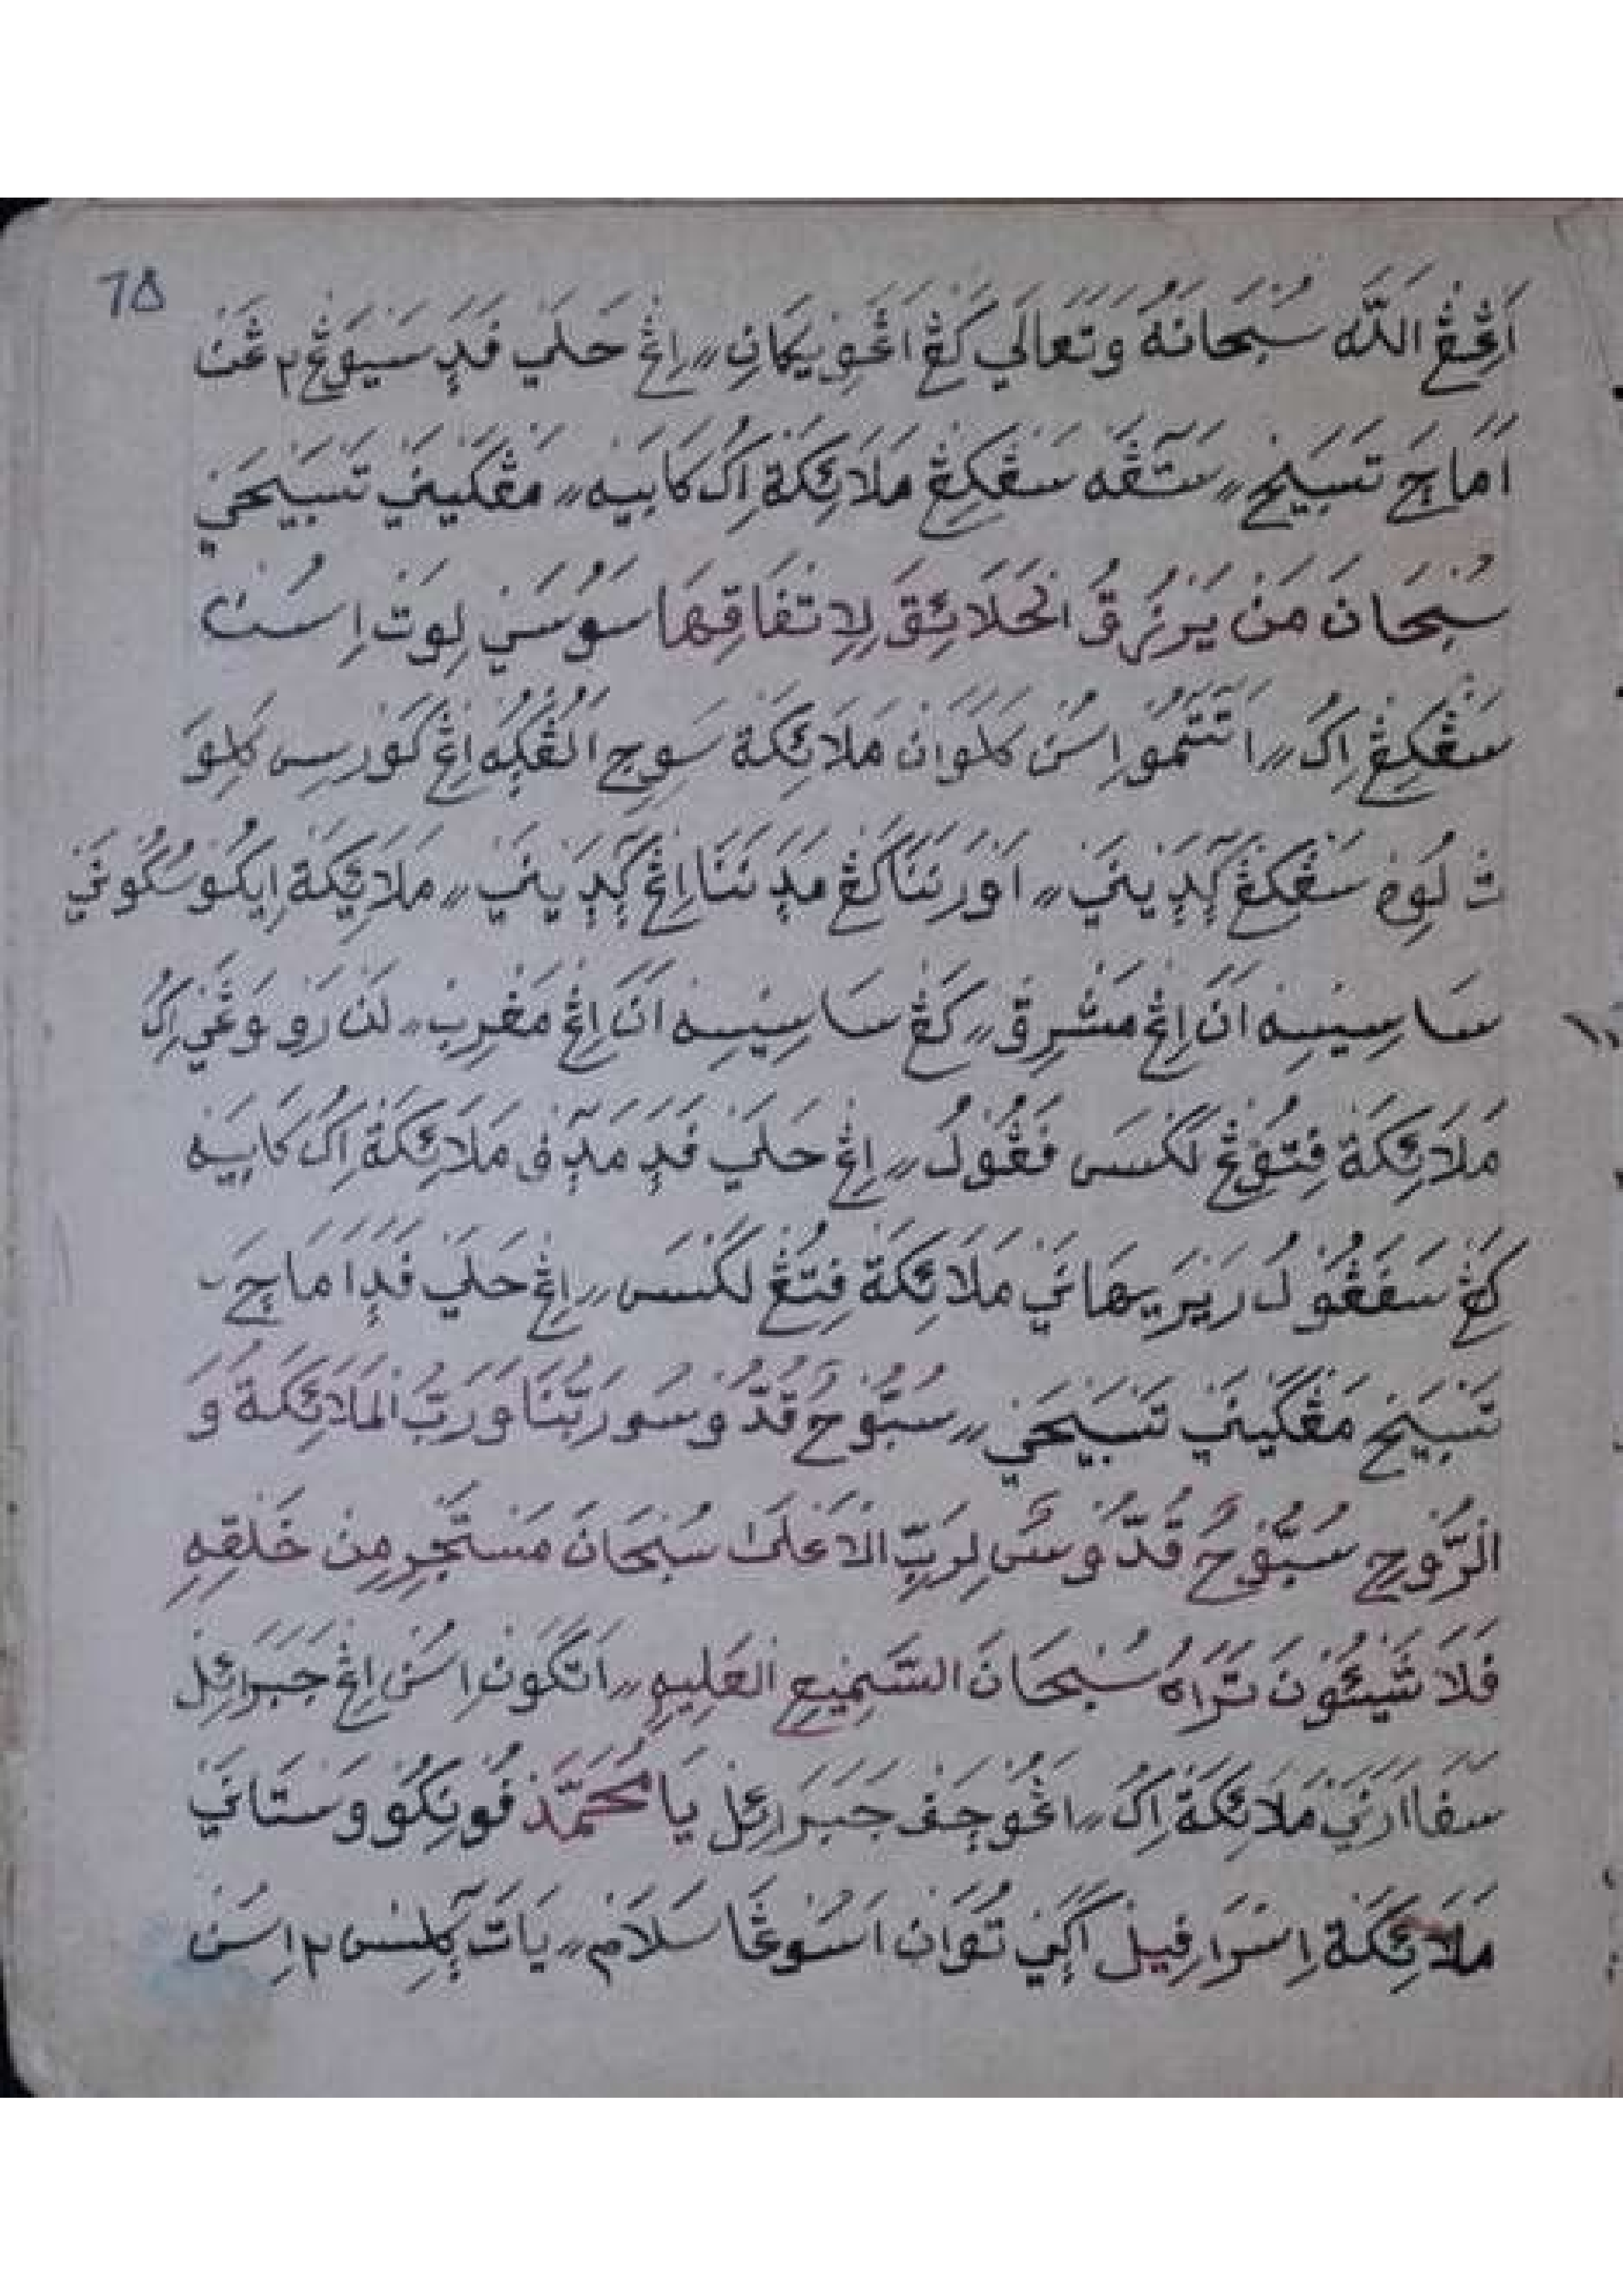 ٦٥
اَڠِڠ اللّٰه سُبْحَانَهُ وَتَعَالَي كَڠْ اَڠَوْنِيكَانِ〃 اِڠْ حَلَيْ فَدَ سَيَوْڠْ٢ ڠَنْ
اَمَاچَ تَسْبَيْح〃 سَتَڤَه سَڤْكِڠْ مَلَائِكَة اِكُ كَابَيْه〃 مَڠْكَيْنَيْ تَسْبَيْحَيْ
سُبْحَانَ مَنْ يَرْزُقُ الْخَلَائِقَ لِاتِفَاقِهَا سَوُسَيْ لِوَتْ اِسُنْ
سَڠْكِڠْ اِكُ〃 اَتَتَمُو اِسُنْ كَلَوَانْ مَلَائِكَة سَوِجِ الُڠْكُه اِڠْ كُوْرِسِ كَلِوَ
تْ لُوِه سَڠْكِڠْ كَدَيْنَيْ〃 اَوْرَنَنَا كَڠْ مَدَنَنَا اِڠْ كَدَيْنَيْ〃 مَلَائِكَة اِيْكُو سُكُوْنَيْ
سَاسِيْسِه اَنَ اِڠْ مَشْرِقْ〃 كَڠْ سَاسِيْسِه اَنَ اِڠْ مَغْرِبْ〃 لَنْ رَوُوَڠَيْ اِكُ
مَلَائِكَة فِتُوْڠْ لَكْسَ فَڠُوْلُ〃 اِڠْ حَلَيْ فَدَ مَدَڤ مَلَائِكَة اِكُ كَابَيْه
كَڠْ سَفَڠُوْلُ رَيْرَيْهَانَيْ مَلَائِكَة فِتُڠْ لَكْسَ〃 اِڠْ حَلَيْ فَدَ اَمَاچَ
تَسْبَيْح مَڠْكَيْنَيْ تَسْبَيْحَيْ〃 سُبُّوْحٌ قُدُّوْسُ رَبُّنَا وَرَبُّ الْمَلَائِكَة وَ
الرُّوْحِ سُبُّوْحٌ قُدُّوْسٌ لِرَبِّ الْاَعْلَىٰ سُبْحَانَ مَسْتَجِرِ مِنْ خَلْقِهِ
فَلَا شَيْئُوْنَ تَرَاهُ سُبْحَانَ السَّمِيْعِ الْعَلِيْمِ〃 اَتَكُوْنْ اِسُنْ اِڠْ جَبَرَائِلْ
سَفَا اَرَنَيْ مَلَائِكَة اِكُ〃 اَڠُوْچَفْ جَبَرَائِلْ يَا مُحَمَّدْ فُوْنِكُو وَسْتَانَيْ
مَلَائِكَة اِسْرَافِيْلْ اَكَيْ تُوَانْ اَسُوْڠَا سَلَامْ〃 يَاتَ كَلِسَ٢ اِسُنْ